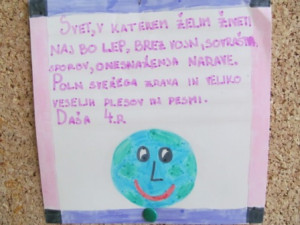 SVET, V KATEREM ŽELIM ŽIVETI
NAJ BO LEP, BREZ VOJN, SOVRAŠTVA,
SPOROV, ONESNAŽENJA NARAVE.
POLN SVEŽEGA ZRAKA IN VELIKO
VESELIH PLESOV IN PESMI.
DAŠA 4.R